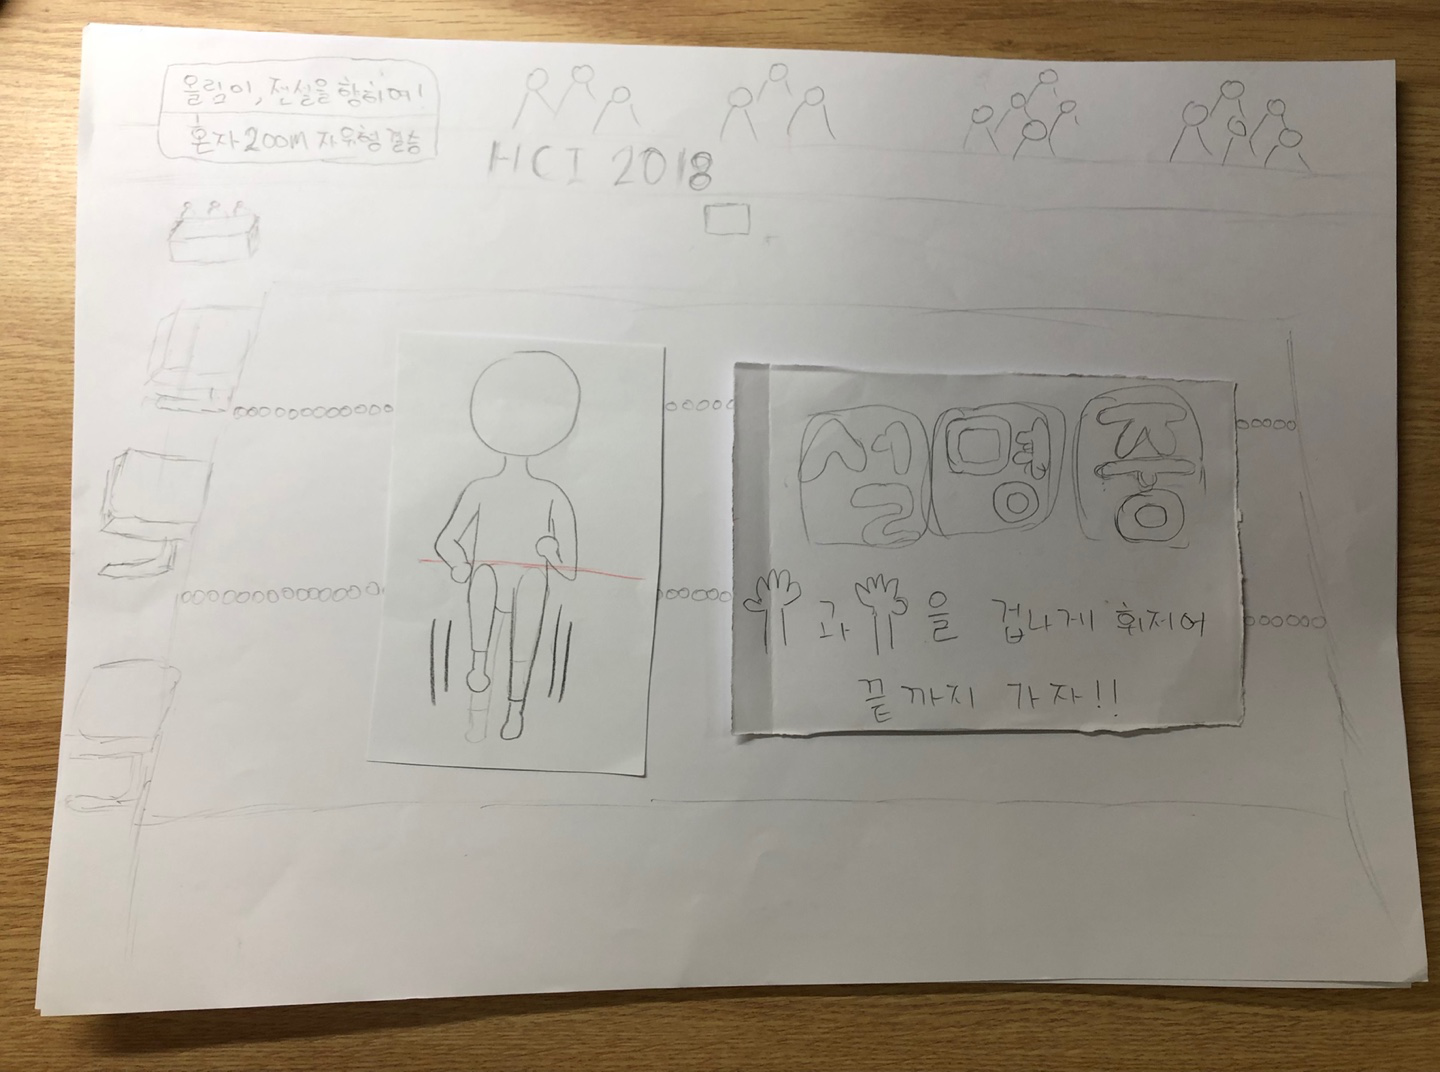 올림이, 전설을 향하여!
혼자 200m 자유형 결승
HCI 2018
설명중
과 을 겁나게 휘저어
끝까지 가자!!